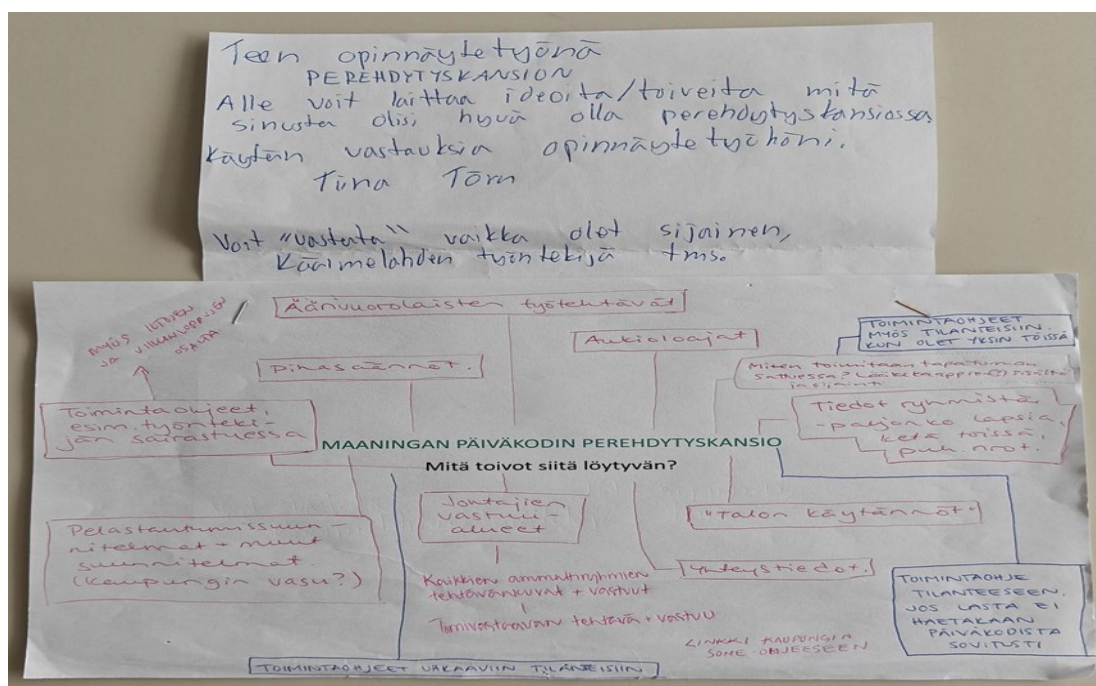 Teen opinnäytetyönä
PEREHDYTYSKANSION
Alle voit laittaa ideoita/toiveita mitä
sinusta olisi hyvä olla perehdytyskansiossa
Käytän vastauksia opinnäytetyöhöni.
Tiina Törn
Voit "vastata" vaikka olet sijainen,
Käärmelahden työntekijä tms.
MYÖS ILTOJEN
JA VIIKONLOPPUJEN
OSALTA
Äärivuorolaisten työtehtävät
Aukioloajat
TOIMINTAOHJEET
MYÖS TILANTEISIIN.
KUN OLET YKSIN TÖISSÄ
Pihasäännöt.
Miten toimitaan tapaturman
sattuessa? Lääkekaappien(?) sisältö
ja sijainti
Toimintaohjeet,
esim. työnteki-
jän sairastuessa
Tiedot ryhmistä.
-paljonko lapsia,
ketä töissä,
puh.nrot.
MAANINGAN PÄIVÄKODIN PEREHDYTYSKANSIO
Mitä toivot siitä löytyvän?
Johtajien
vastuu-
alueet
"Talon käytännöt"
Pelastautumissuun-
nitelmat + muut
suunnitelmat.
(Kaupungin vasu?)
Kaikkien ammattiryhmien
tehtävänkuvat + vastuut
Tiimivastaavan tehtävä + vastuu
Yhteystiedot.
LINKKI KAUPUNGIN
SOME-OHJEESEEN
TOIMINTAOHJE
TILANTEESEEN.
JOS LASTA EI
HAETAKAAN
PÄIVÄKODISTA
SOVITUSTI
TOIMINTAOHJEET UHKAAVIIN TILANTEISIIN